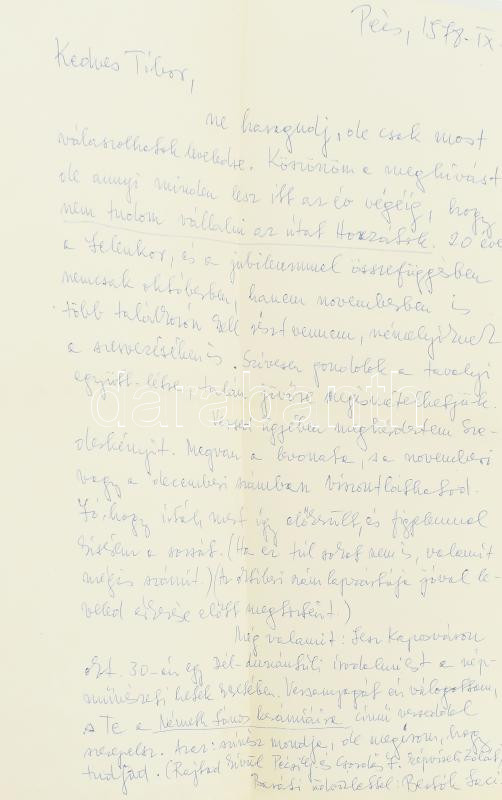 Pécs, 1978. IX.
Kedves Tibor,
ne haragudj, de csak most
válaszolhatok leveledre. Köszönöm a meghívást
de annyi minden lesz itt az év végéig, hogy
nem tudom vállalni az utat Hozzátok. 20 éve
a Jelenkor, és a jubileummal összefüggésben
nemcsak októberben, hanem novemberben is
több találkozón kell részt vennem, némelyiknek
a szervezésében is. Szívesen gondolok a tavalyi
együtt-létre, talán jövőre megismételhetjük.
Versed ügyében megkérdeztem Sze-
derkényit. Megvan a levonata, s a novemberi
vagy a decemberi számban viszontláthatod.
Jó, hogy írták mert így előkerült, és figyelemmel
kísérem a sorsát. (Ha ez túl sokat nem is, valamit
mégis számít.) (Az októberi szám lapzártája jóval le-
veled érkezése előtt megtörtént.)
Még valamit: lesz Kaposváron
okt. 30-án egy Dél-dunántúli irodalmi est a nép-
művészeti hetek keretében. Versanyagát én válogattam,
s Te a Németh János kerámiáira című verseddel
szerepelsz. Azaz: színész mondja, de megírom, hogy
tudjad. (Rajtad kívül Pécsi és Csordás
Baráti üdvözlettel: Bertók Laci
darabanth